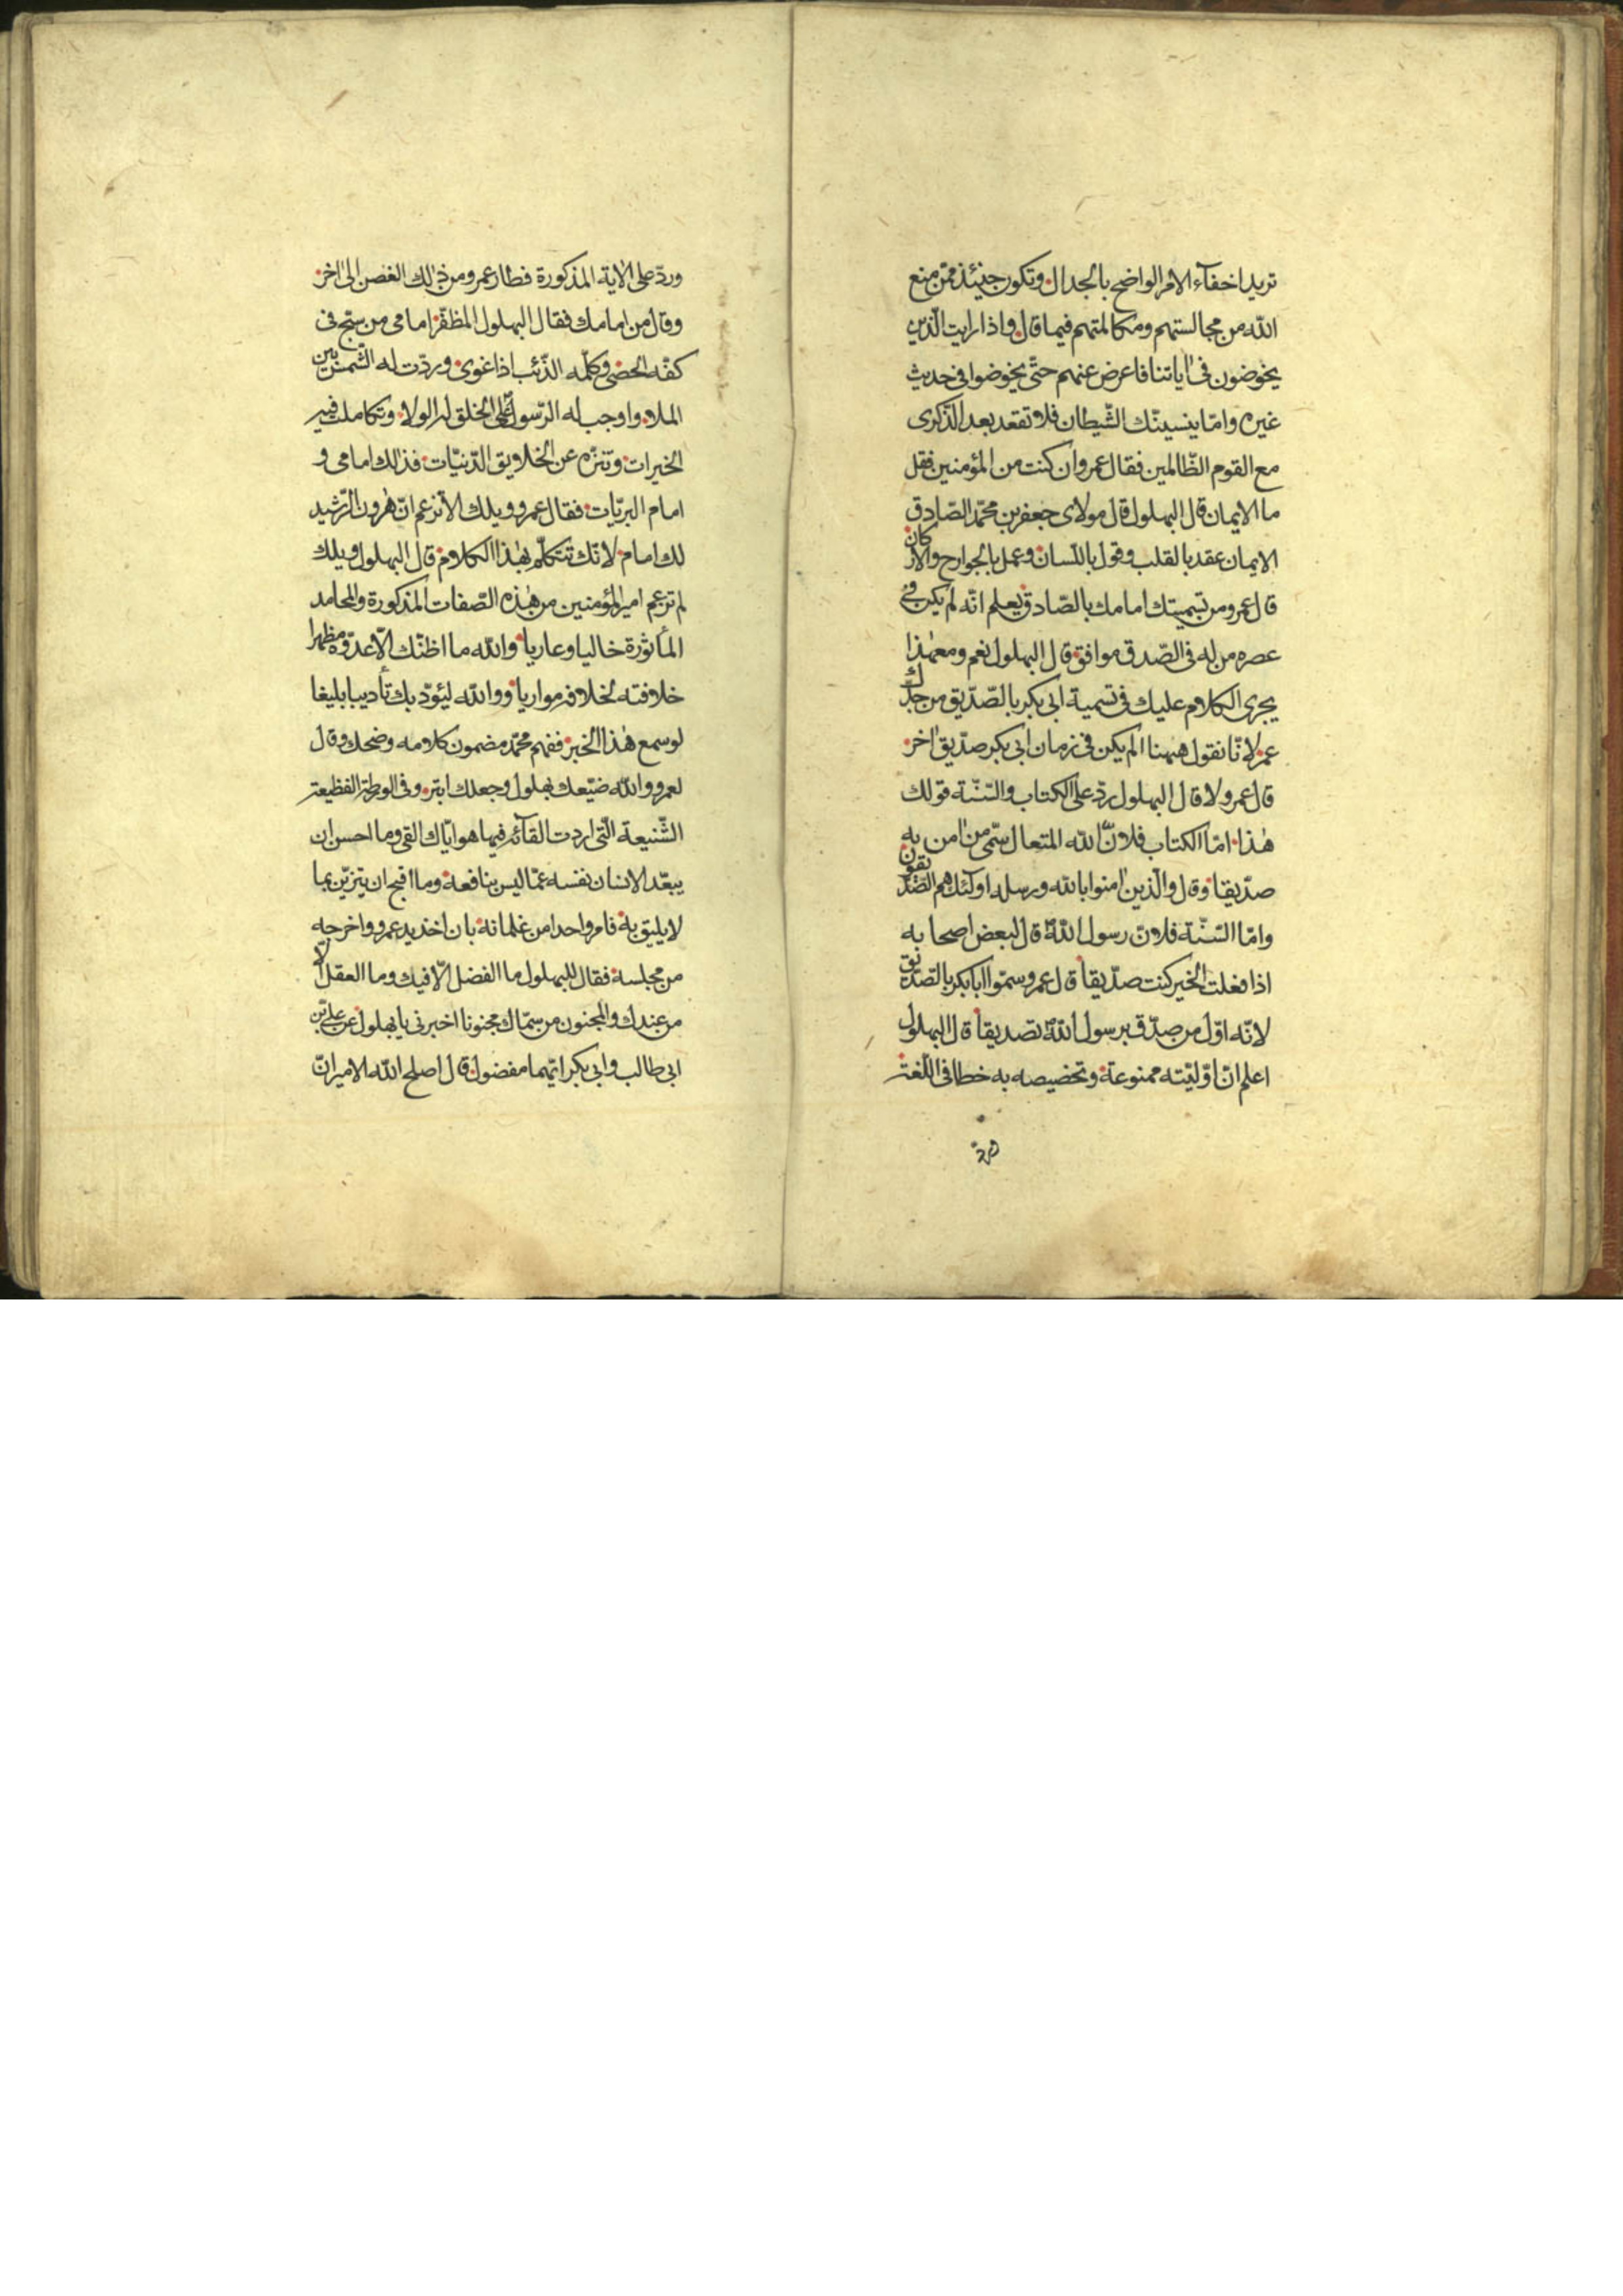 تريد اخفآء الامر الواضح بالجدال وتكون حينئذ ممّن منع
الله من مجالستهم ومكالمتهم فيما قال واذا رايت الّذين
يخوضون فى اياتنا فاعرض عنهم حتّى يخوضوا فى حديث
غيره وامّا ينسينّك الشّيطان فلا تقعد بعد الذّكرى
مع القوم الظّالمين فقال عمرو ان كنت من المؤمنين فقل
ما الايمان قال البهلول قال مولاى جعفر بن محمّد الصّادق
الايمان عقد بالقلب وقول باللّسان وعمل بالجوارح والاركان
قال عمرو من تسميتك امامك بالصّادق يعلم انّه لم يكن فى
عصره من له فى الصّدق موافق قال البهلول نعم ومع هٰذا
يجرى الكلام عليك فى تسمية ابى بكر بالصّدّيق من جدّك
عمر لانّا نقول ههنا الم يكن فى زمان ابى بكر صدّيق اخر
قال عمرو لا قال البهلول ردّ على الكتاب والسّنّة قولك
هٰذا امّا الكتاب فلانّ الله المتعال سمّى من امن به
صدّيقا وقال والّذين امنوا بالله ورسله اولئك هم الصّدّيقون
وامّا السّنّة فلانّ رسول الله قال لبعض اصحابه
اذا فعلت الخير كنت صدّيقا قال عمرو سمّوا ابا بكر بالصّدّيق
لانّه اوّل من صدّق برسول الله تصديقا قال البهلول
اعلم انّ اوّليّته ممنوعة وتخصيصه به خطا فى اللّغة
وردّ على الاية المذكورة فطار عمرو من ذٰلك الغصن الى اخر
وقال من امامك فقال البهلول المظفّر امامى من سبّح فى
كفّه الحصى وكلّمه الذّئب اذا عوى وردّت له الشّمس بين
الملا واوجب له الرّسول على الخلق له الولا وتكاملت فيه
الخيرات وتنزّه عن الخلايق الدّنيّات فذالك امامى و
امام البريّات فقال عمرو ويلك الا تزعم انّ هٰرون الرّشيد
لك امام لانّك تتكلّم بهٰذا الكلام قال البهلول ويلك
لم تزعم امير المؤمنين من هٰذه الصّفات المذكورة والمحامد
المأثورة خاليا وعاريا والله ما اظنّك الّا عدوّه مظهرا
خلافته لخلافه مواريا ووالله ليئودّبك تأديبا بليغا
لو سمع هٰذا الخبر ففهم محمّد مضمون كلامه وضحك وقال
لعمرو والله ضيّعك بهلول وجعلك ابتر وفى الورطة الفظيعة
الشّنيعة الّتى اردت القآئه فيها هو ايّاك القى وما احسن ان
يبعّد الانسان نفسه عمّا ليس بنافعه وما اقبح ان يتزيّن بما
لا يليق به فامر واحدا من غلمانه بان اخذ يد عمرو واخرجه
من مجلسه فقال للبهلول ما الفضل الّا فيك وما العقل الّا
من عندك والمجنون من سمّاك مجنونا اخبرنى يا بهلول عن علىّ بن
ابى طالب وابى بكر ايّهما مفضول قال اصلح الله الامير انّ